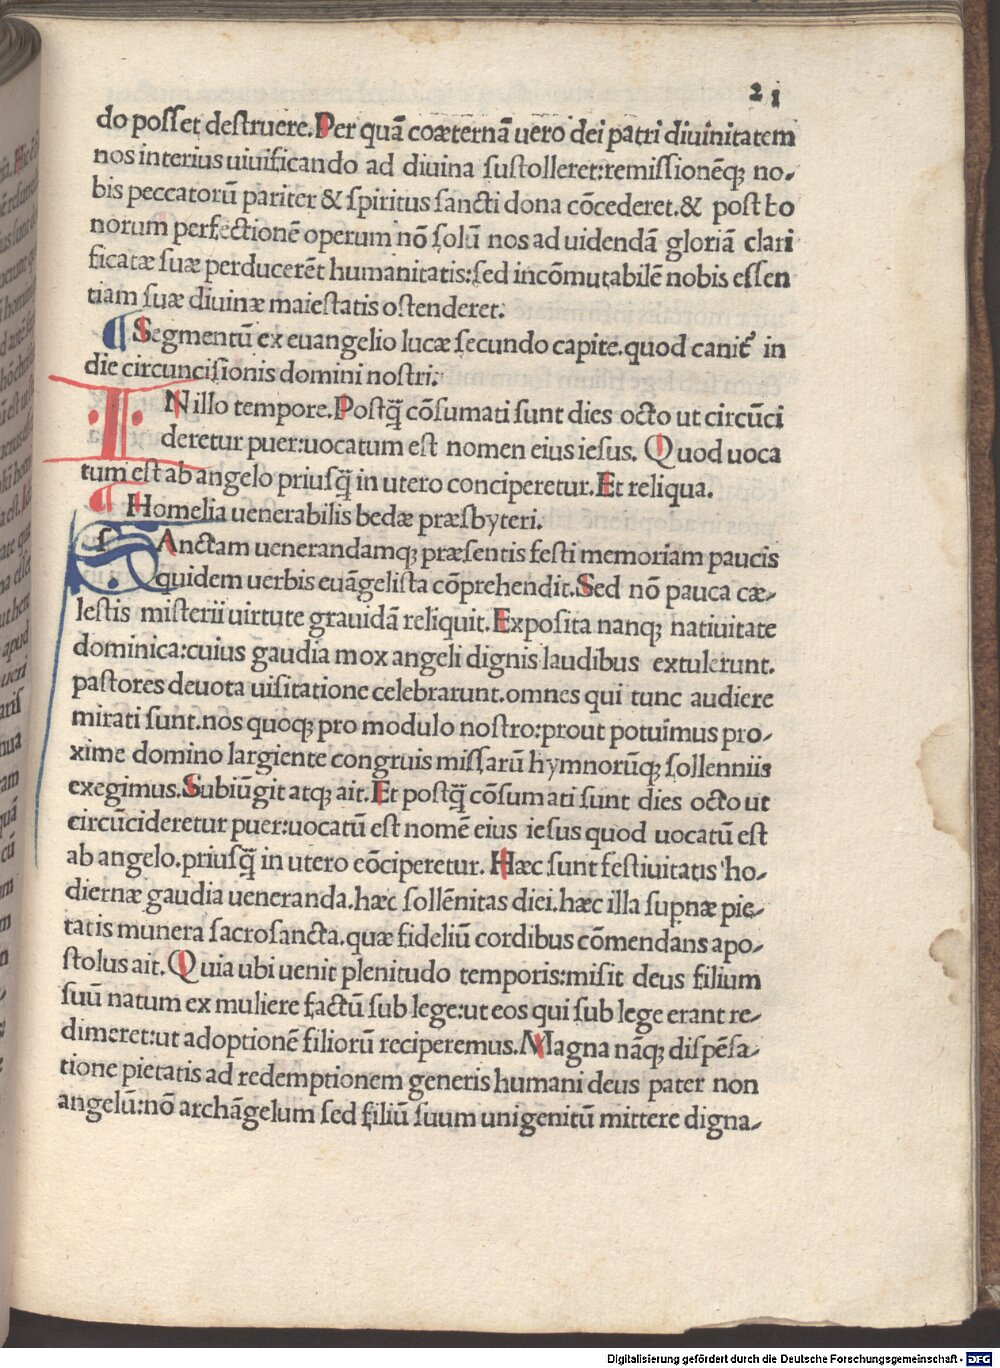 21
do posset destruere. Per quā coæternā uero dei patri diuinitatem
nos interius uiuificando ad diuina sustolleret: remissionēq; no-
bis peccatorū pariter & spiritus sancti dona cōcederet. & post bo
norum perfectionē operum nō solū nos ad uidendā gloriā clari
ficatæ suæ perducerēt humanitatis: sed incōmutabilē nobis essen
tiam suæ diuinæ maiestatis ostenderet.
¶ Segmentū ex euangelio lucæ secundo capite. quod canit̄ in
die circuncisionis domini nostri.
IN illo tempore. Postq̄ cōsumati sunt dies octo ut circūci
deretur puer: uocatum est nomen eius iesus. Quod uoca
tum est ab angelo priusq̄ in utero conciperetur. Et reliqua.
¶ Homelia uenerabilis bedæ præsbyteri.
SAnctam uenerandamq; præsentis festi memoriam paucis
quidem uerbis euāgelista cōprehendit. Sed nō pauca cæ-
lestis misterii uirtute grauidā reliquit. Exposita nanq; natiuitate
dominica: cuius gaudia mox angeli dignis laudibus extulerunt.
pastores deuota uisitatione celebrarunt. omnes qui tunc audiere
mirati sunt. nos quoq; pro modulo nostro: prout potuimus pro-
xime domino largiente congruis missarū hymnorūq; sollenniis
exegimus. Subiūgit atq; ait. Et postq̄ cōsumati sunt dies octo ut
circūcideretur puer: uocatū est nomē eius iesus quod uocatū est
ab angelo. priusq̄ in utero cōciperetur. Hæc sunt festiuitatis ho-
diernæ gaudia ueneranda. hæc sollēnitas diei. hæc illa supnæ pie-
tatis munera sacrosancta. quæ fideliū cordibus cōmendans apo-
stolus ait. Quia ubi uenit plenitudo temporis: misit deus filium
suū natum ex muliere factū sub lege: ut eos qui sub lege erant re-
dimeret: ut adoptionē filiorū reciperemus. Magna nāq; dispēsa-
tione pietatis ad redemptionem generis humani deus pater non
angelū: nō archāgelum sed filiū suum unigenitū mittere digna-
Digitalisierung gefördert durch die Deutsche Forschungsgemeinschaft - DFG